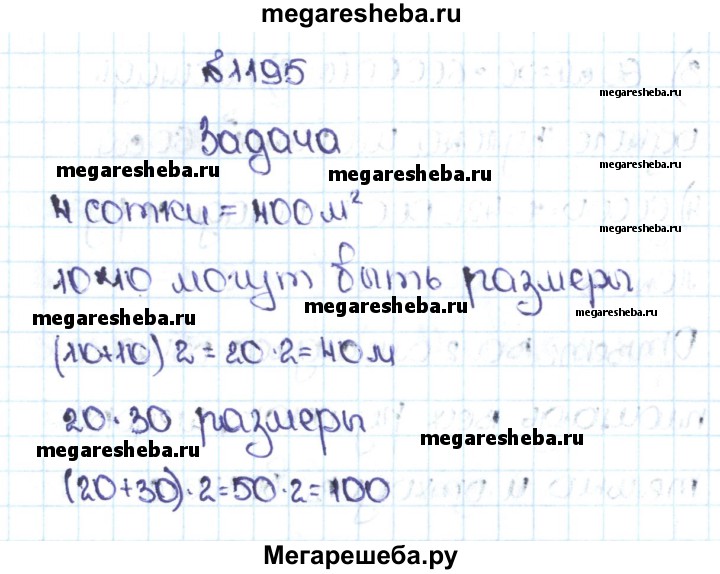 megaresheba.ru
№1195
megaresheba.ru
Задача
megaresheba.ru
megaresheba.ru
4 сотки = 400 м²
megaresheba.ru
10·10 могут быть размеры
megaresheba.ru
megaresheba.ru
megaresheba.ru
(10+10) 2 = 20·2 = 40 м
20·30 размеры
megaresheba.ru
megaresheba.ru
(20+30)·2=50·2=100
Мегарешеба.ру